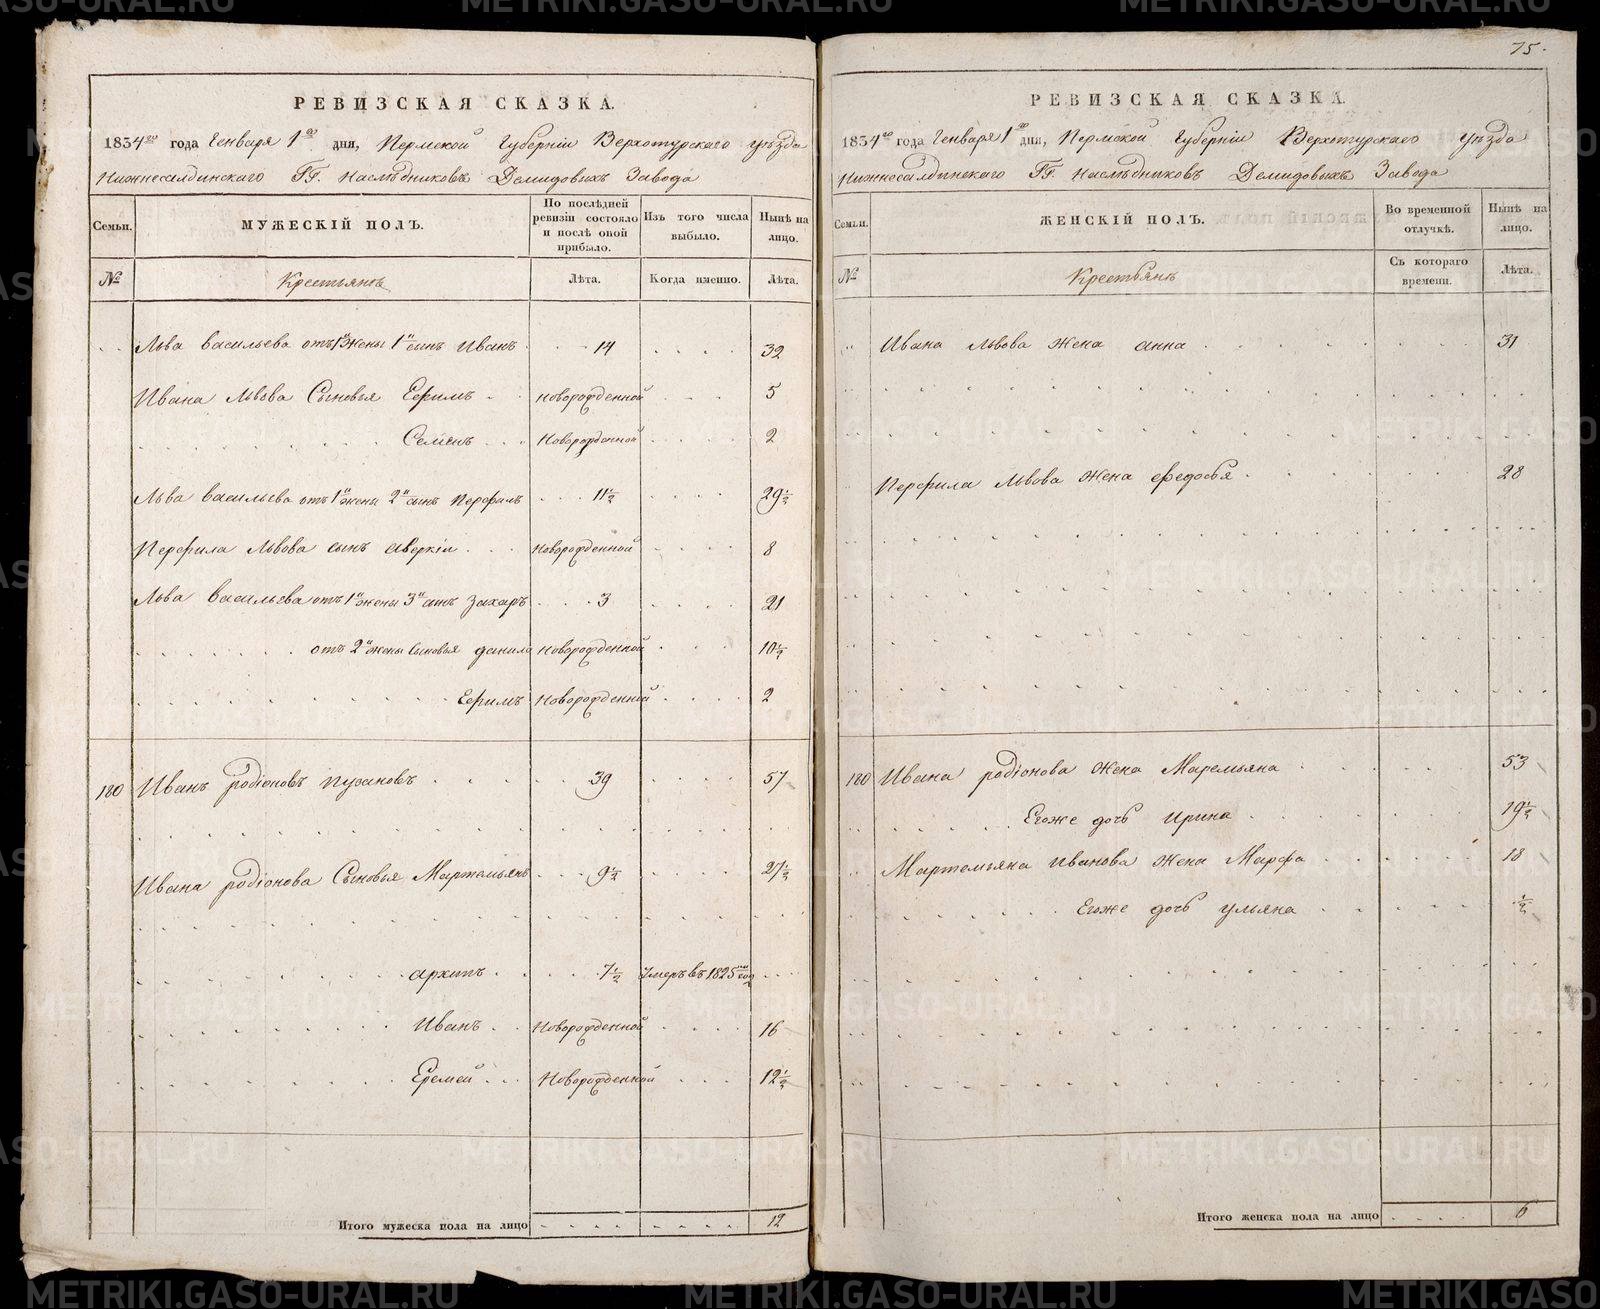 РЕВИЗСКАЯ СКАЗКА.
1834го года Генваря 1го дня, Пермской Губернiи Верхотурскаго уѣзда
Нижнесалдинскаго ГГ. Наслѣдниковъ Демидовыхъ Завода
Семьи.
МУЖЕСКIЙ ПОЛЪ.
По послѣдней ревизiи состояло и послѣ оной прибыло.
Изъ того числа выбыло.
Нынѣ на лицо.
№
Крестьянъ
Лѣта.
Когда именно.
Лѣта.
Льва Васильева отъ 1й жены 1й сынъ Иванъ 14 32
Ивана Львова Сыновья Ефимъ новорожденной 5
Семенъ Новорожденной 2
Льва Васильева отъ 1й жены 2й сынъ Перфилъ 11½ 29½
Перфила Львова сынъ Аверкiи Новорожденной 8
Льва Васильева отъ 1й жены 3й сынъ Захаръ 3 21
отъ 2й жены Сыновья данило Новорожденной 10½
Ефимъ Новорожденной 2
180 Иванъ родiоновъ Пузановъ 39 57
Ивана родiонова Сыновья Мартемьянъ 9½ 27½
архипъ 7½ Умеръ въ 1825м году
Иванъ Новорожденной 16
Еремей Новорожденной 12½
Итого мужеска пола на лицо 12
75.
РЕВИЗСКАЯ СКАЗКА.
1834го года Генваря 1го дня, Пермской Губернiи Верхотурскаго уѣзда
Нижнесалдинскаго ГГ. Наслѣдниковъ Демидовыхъ Завода
Семьи.
ЖЕНСКIЙ ПОЛЪ.
Во временной отлучкѣ.
Нынѣ на лицо.
№
Крестьянъ
Съ котораго времени.
Лѣта.
Ивана Львова жена анна 31
Перфила Львова жена федосья 28
180 Ивана родiонова жена Маремьяна 53
Егоже дочь Ирина 19½
Мартемьяна Иванова жена Марфа 18
Егоже дочь ульяна ½
Итого женска пола на лицо 6
METRIKI.GASO-URAL.RU